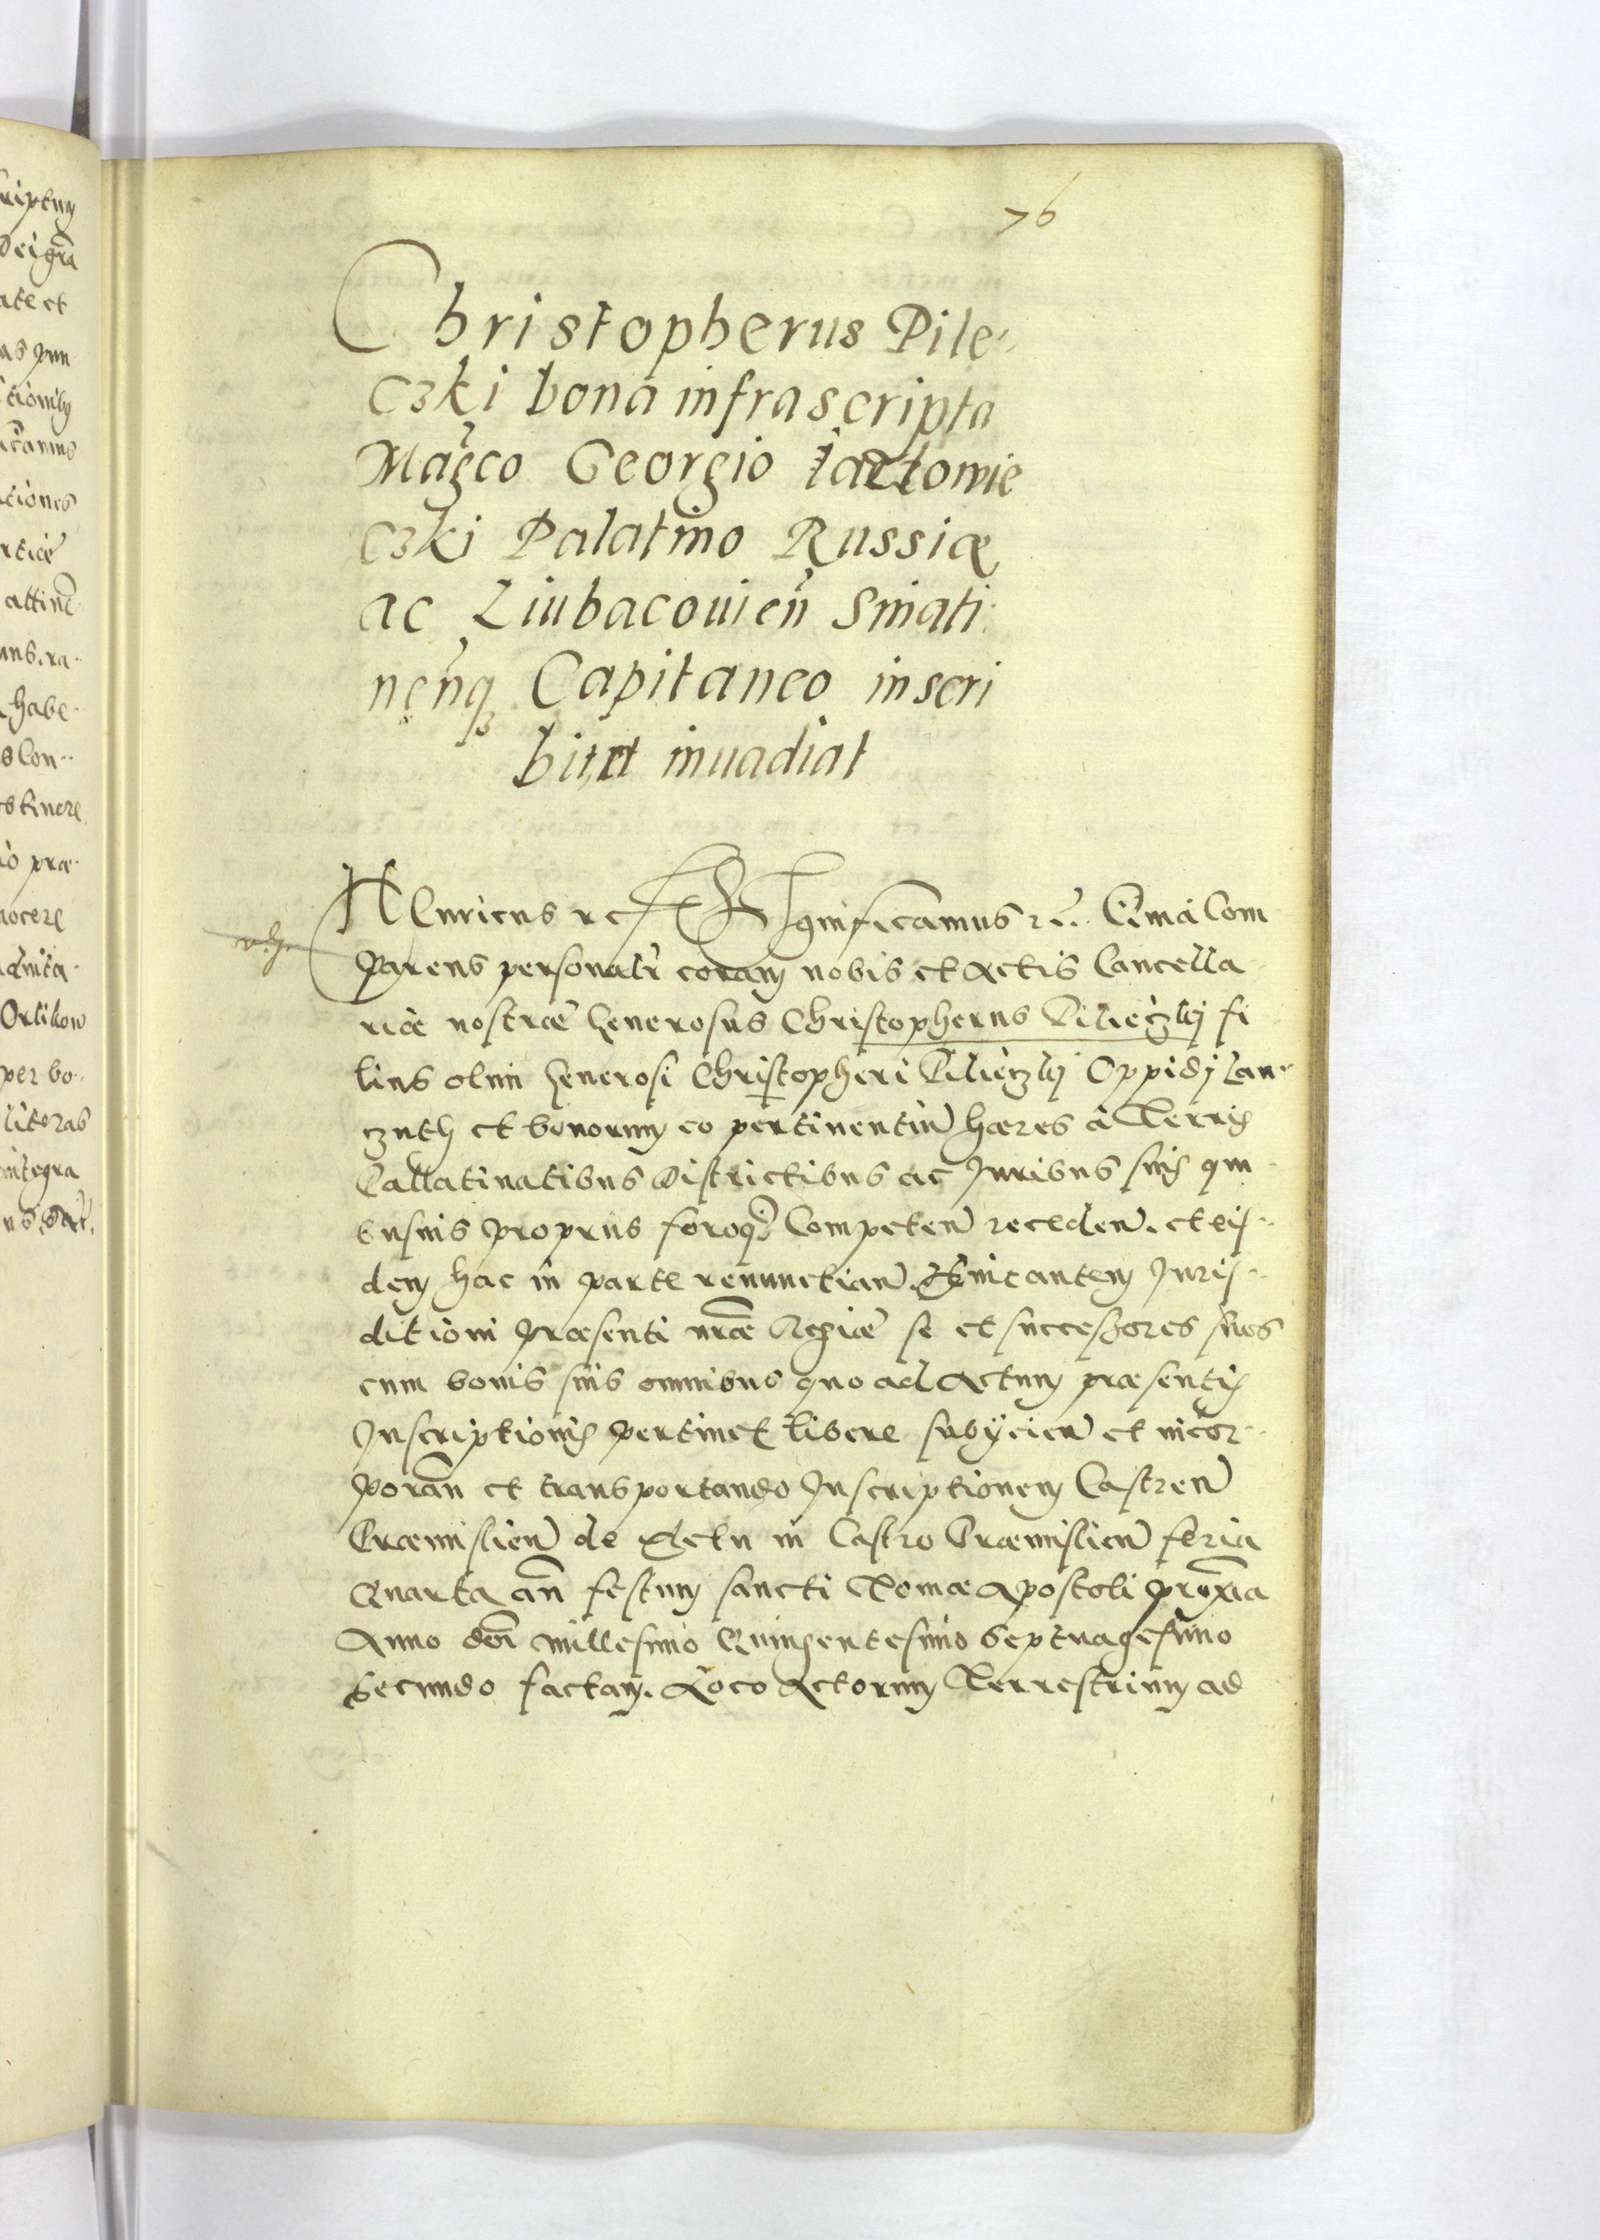 76
Christopherus Pile-
czki bona infrascripta
Magco Georgio Iazlowie
czki Palatino Russiæ
ac Liubacouien Sniati
nenq Capitaneo inscri
bit et inuadiat
Henricus etc Significamus etc. Quia Com
parens personaliter coram nobis et Actis Cancella
riæ nostræ Generosus Christopherus Pilieczkij fi
lius olim Generosi Christopheri Pilieczkij Oppidj Lan-
czuth et bonorum eo pertinentiu hæres a Terris
Pallatinatibus Districtibus ac Juribus suis qui
busuis proprijs foroq Competen receden. et eis-
dem hac in parte renunctian. Huic autem Juris-
ditioni præsenti nræ Regiæ se et successores suos
cum bonis suis omnibus quo ad Actum præsentis
Inscriptionis pertinet libere subijcien et incor-
poran et transportando Inscriptionem Castren
Præmislien de Actu in Castro Præmislien feria
Quarta an festum sancti Thomæ Apostoli proxia
Anno dni Millesimo Quingentesimo Septuagesimo
Secundo factam. Loco Actorum Terrestrium ad
riptum
Dei gra
ate et
ationes
attinen
habe-
s Con-
præ-
nocere
per bo-
literas
integra